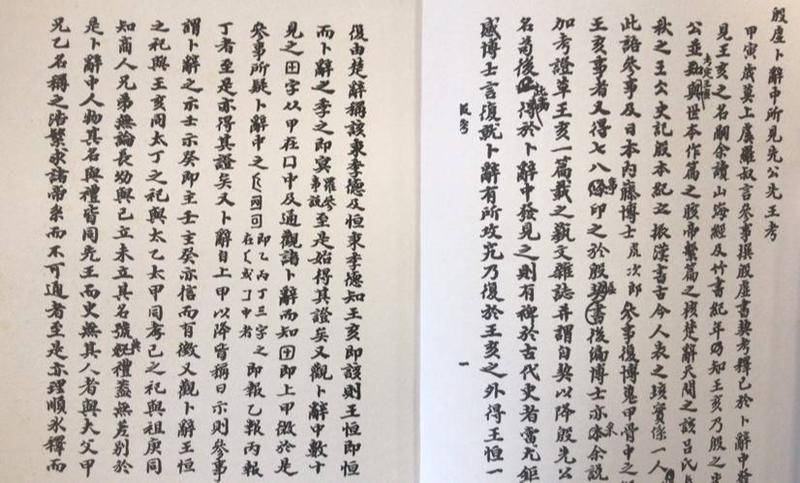 殷虛卜辭中所見先公先王考
甲寅歲莫上虞羅叔言參事撰殷虛書契考釋已於卜辭中發
見王亥之名嗣余讀山海經及竹書紀年乃知王亥乃殷之先
公並與世本作篇之胲帝繫篇之核楚辭天問之該呂氏
秋之王史記殷本紀之振漢書古今人表之垓實係一人
此語參事及日本內藤博士虎次郎參事復博蒐甲骨中之
王亥事者又得七八條印之於殷虛書後編博士亦采余說
加考證草王亥一篇載之藝文雜誌并謂自契以降殷先公
名苟後此尚得於卜辭中發見之則有裨於古代史者當尤鉅
感博士言復就卜辭有所攻究乃復於王亥之外得王恆一
一
復由楚辭稱該秉季德及恆秉季德知王亥即該則王恆即恆
而卜辭之季之即冥羅參事說至是始得其證矣又觀卜辭中數十
見之田字从甲在囗中及通觀諸卜辭而知田即上甲微於是
參事所疑卜辭中之即乙丙丁三字之在匚或コ中者即報乙報丙報
丁者至是亦得其證矣又卜辭自上甲以降皆稱曰示則參事
謂卜辭之示壬示癸即主壬主癸亦信而有徵又觀卜辭王恆
之祀與王亥同太丁之祀與太乙太甲同孝己之祀與祖庚同
知商人兄弟無論長幼與已立未立其名號典禮蓋無差別於
是卜辭中人物其名與禮皆同先王而史無其人者與夫父甲
兄乙名稱之浩繁求諸帝系而不可通者至是亦理順冰釋而